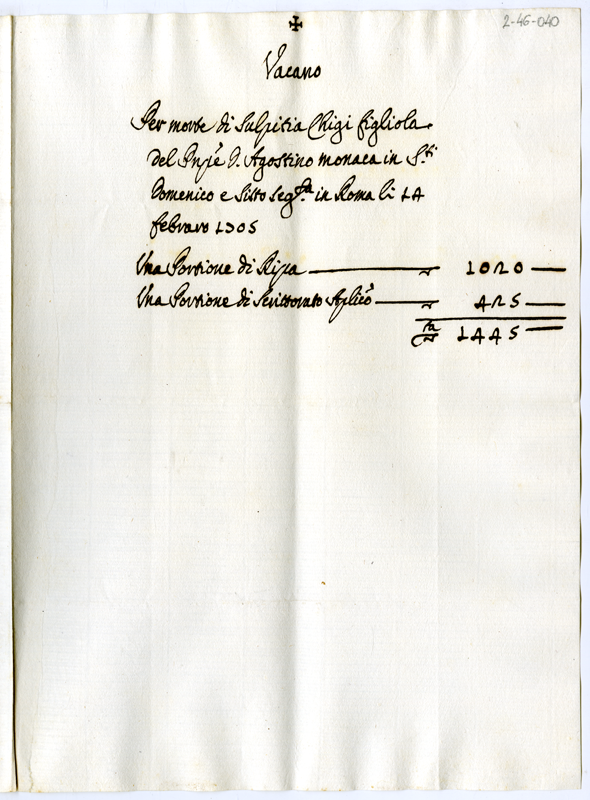 2-46-040
✠
Vacano
Per morte di Sulpitia Chigi figliola
del Pnpẽ D. Agostino monaca in S.ti
Domenico e Sisto seg.ta in Roma li 14
febraro 1705
Una Portione di Ripa 1020
Una Portione di Scrittorato Aplicõ 425
1445